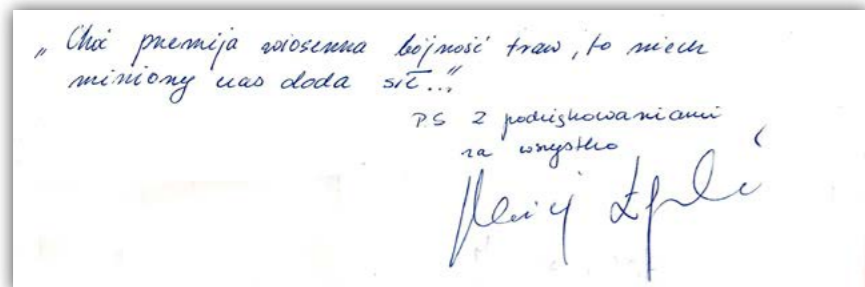 „Choć przemija wiosenna bójność traw, to niech
miniony czas doda sił..."
P.S Z podziękowaniami
za wszystko